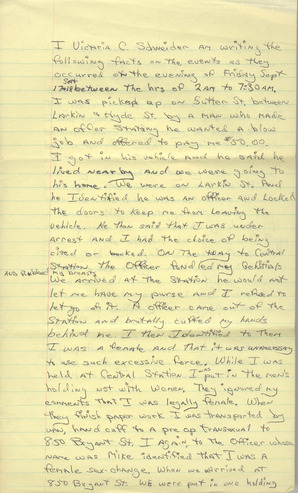 I Victoria C. Schneider am writing the
following facts on the events as they
occurred on the evening of Friday Sept
Sat
17th between The hrs of 2AM to 7:30AM,
I was picked up on Sutter St. between
Larkin & Hyde St. by a man who made
an offer stating he wanted a blow
job and offered to pay me $50.00.
I got in his vehicle and he said he
lived near by and we were going to
his home. We were on Larkin St. And
he Identified he was an officer and Locked
the doors to keep me from leaving the
vehicle. He then said that I was under
arrest and I had the choice of being
cited or booked. ON The way to Central
Station the Officer fondled my Genitials
AND Rubbed my breasts
We arrived at The Station he would not
let me have my purse and I refused to
let go of it. A officer came out of the
Station and brutally cuffed my hands
behind me. I then Identified to Them
I was a female and that it was unnecessary
to use such excessive force. While I was
held at Central Station I was put in the men's
holding not with women, They ignored my
comments That I was legally female. When
they finish paper work I was transported by
van, hand cuff to a pre op transexual to
850 Bryant St. I Again to the Officer whose
name was Mike identified that I was a
female sex-change. When we arrived at
850 Bryant St. We were put in one holding